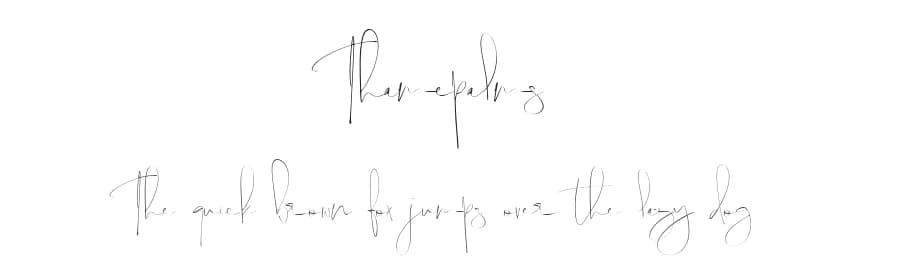 Thamepalms
The quick brown fox jumps over the lazy dog